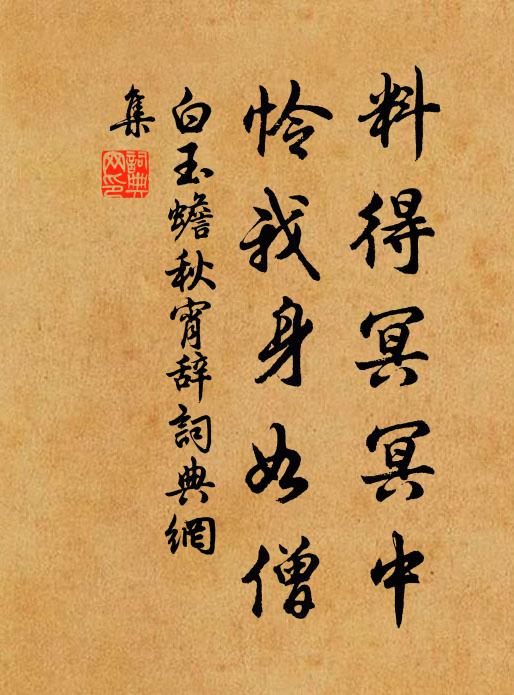 料得冥冥中
怜我身如僧
白玉蟾秋宵辞詞典網
集
詞典
网印